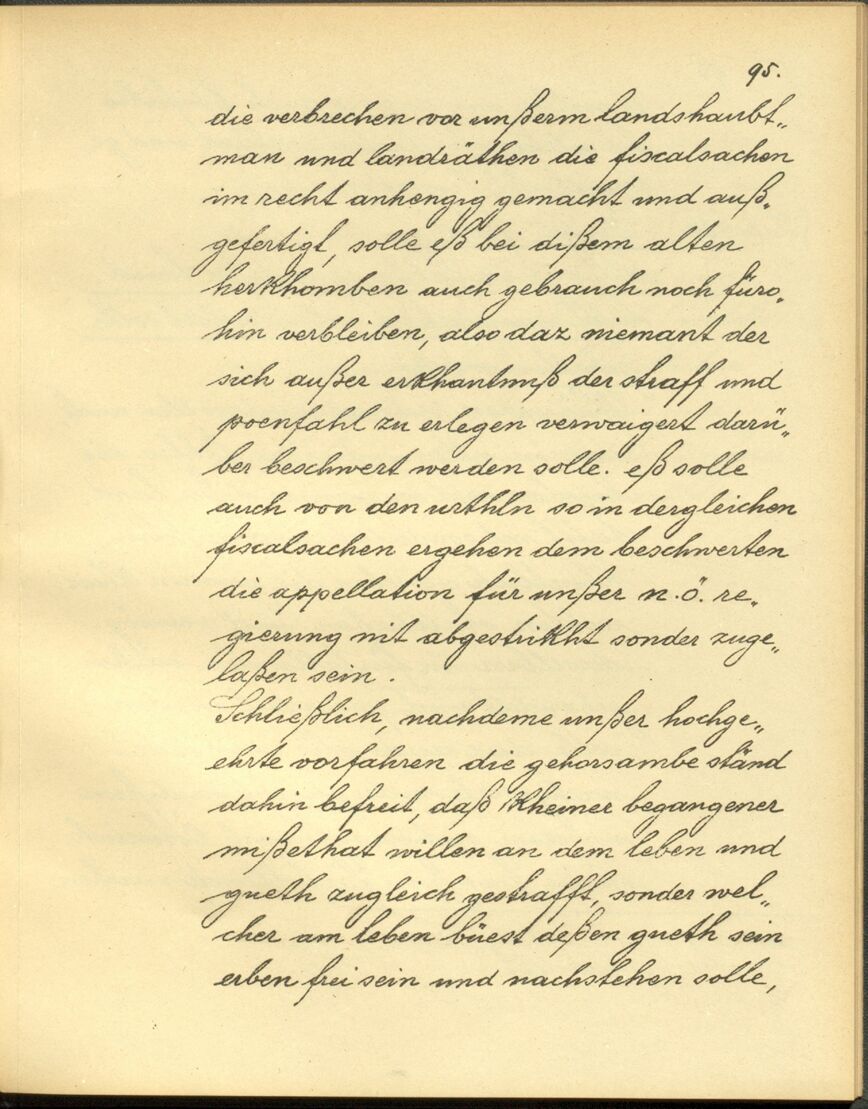 95.
die verbrechen vor unßerm landshaubt„
man und landräthen die fiscalsachen
im recht anhengig gemacht und auß„
gefertigt, solle eß bei dißem alten
herkhomben auch gebrauch noch füro„
hin verbleiben, also daz niemant der
sich außer erkhantnuß der straff und
poenfahl zu erlegen verwaigert darü„
ber beschwert werden solle. eß solle
auch von den urthln so in dergleichen
fiscalsachen ergehen dem beschwerten
die appellation für unßer n.ö. re„
gierung nit abgestrikht sonder zuge„
laßen sein.
Schließlich, nachdeme unßer hochge„
ehrte vorfahren die gehorsambe ständ
dahin befreit, daß kheiner begangener
mißethat willen an dem leben und
gueth zugleich gestrafft, sonder wel„
cher am leben büest deßen gueth sein
erben frei sein und nachstehen solle,